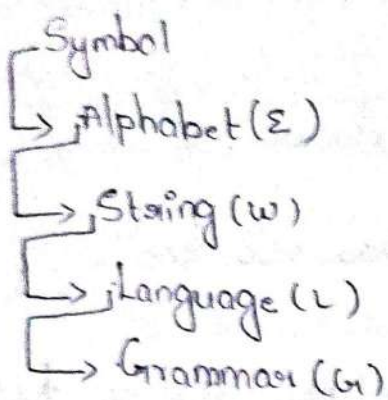 Symbol
Alphabet (Σ)
String (w)
Language (L)
Grammar (G)